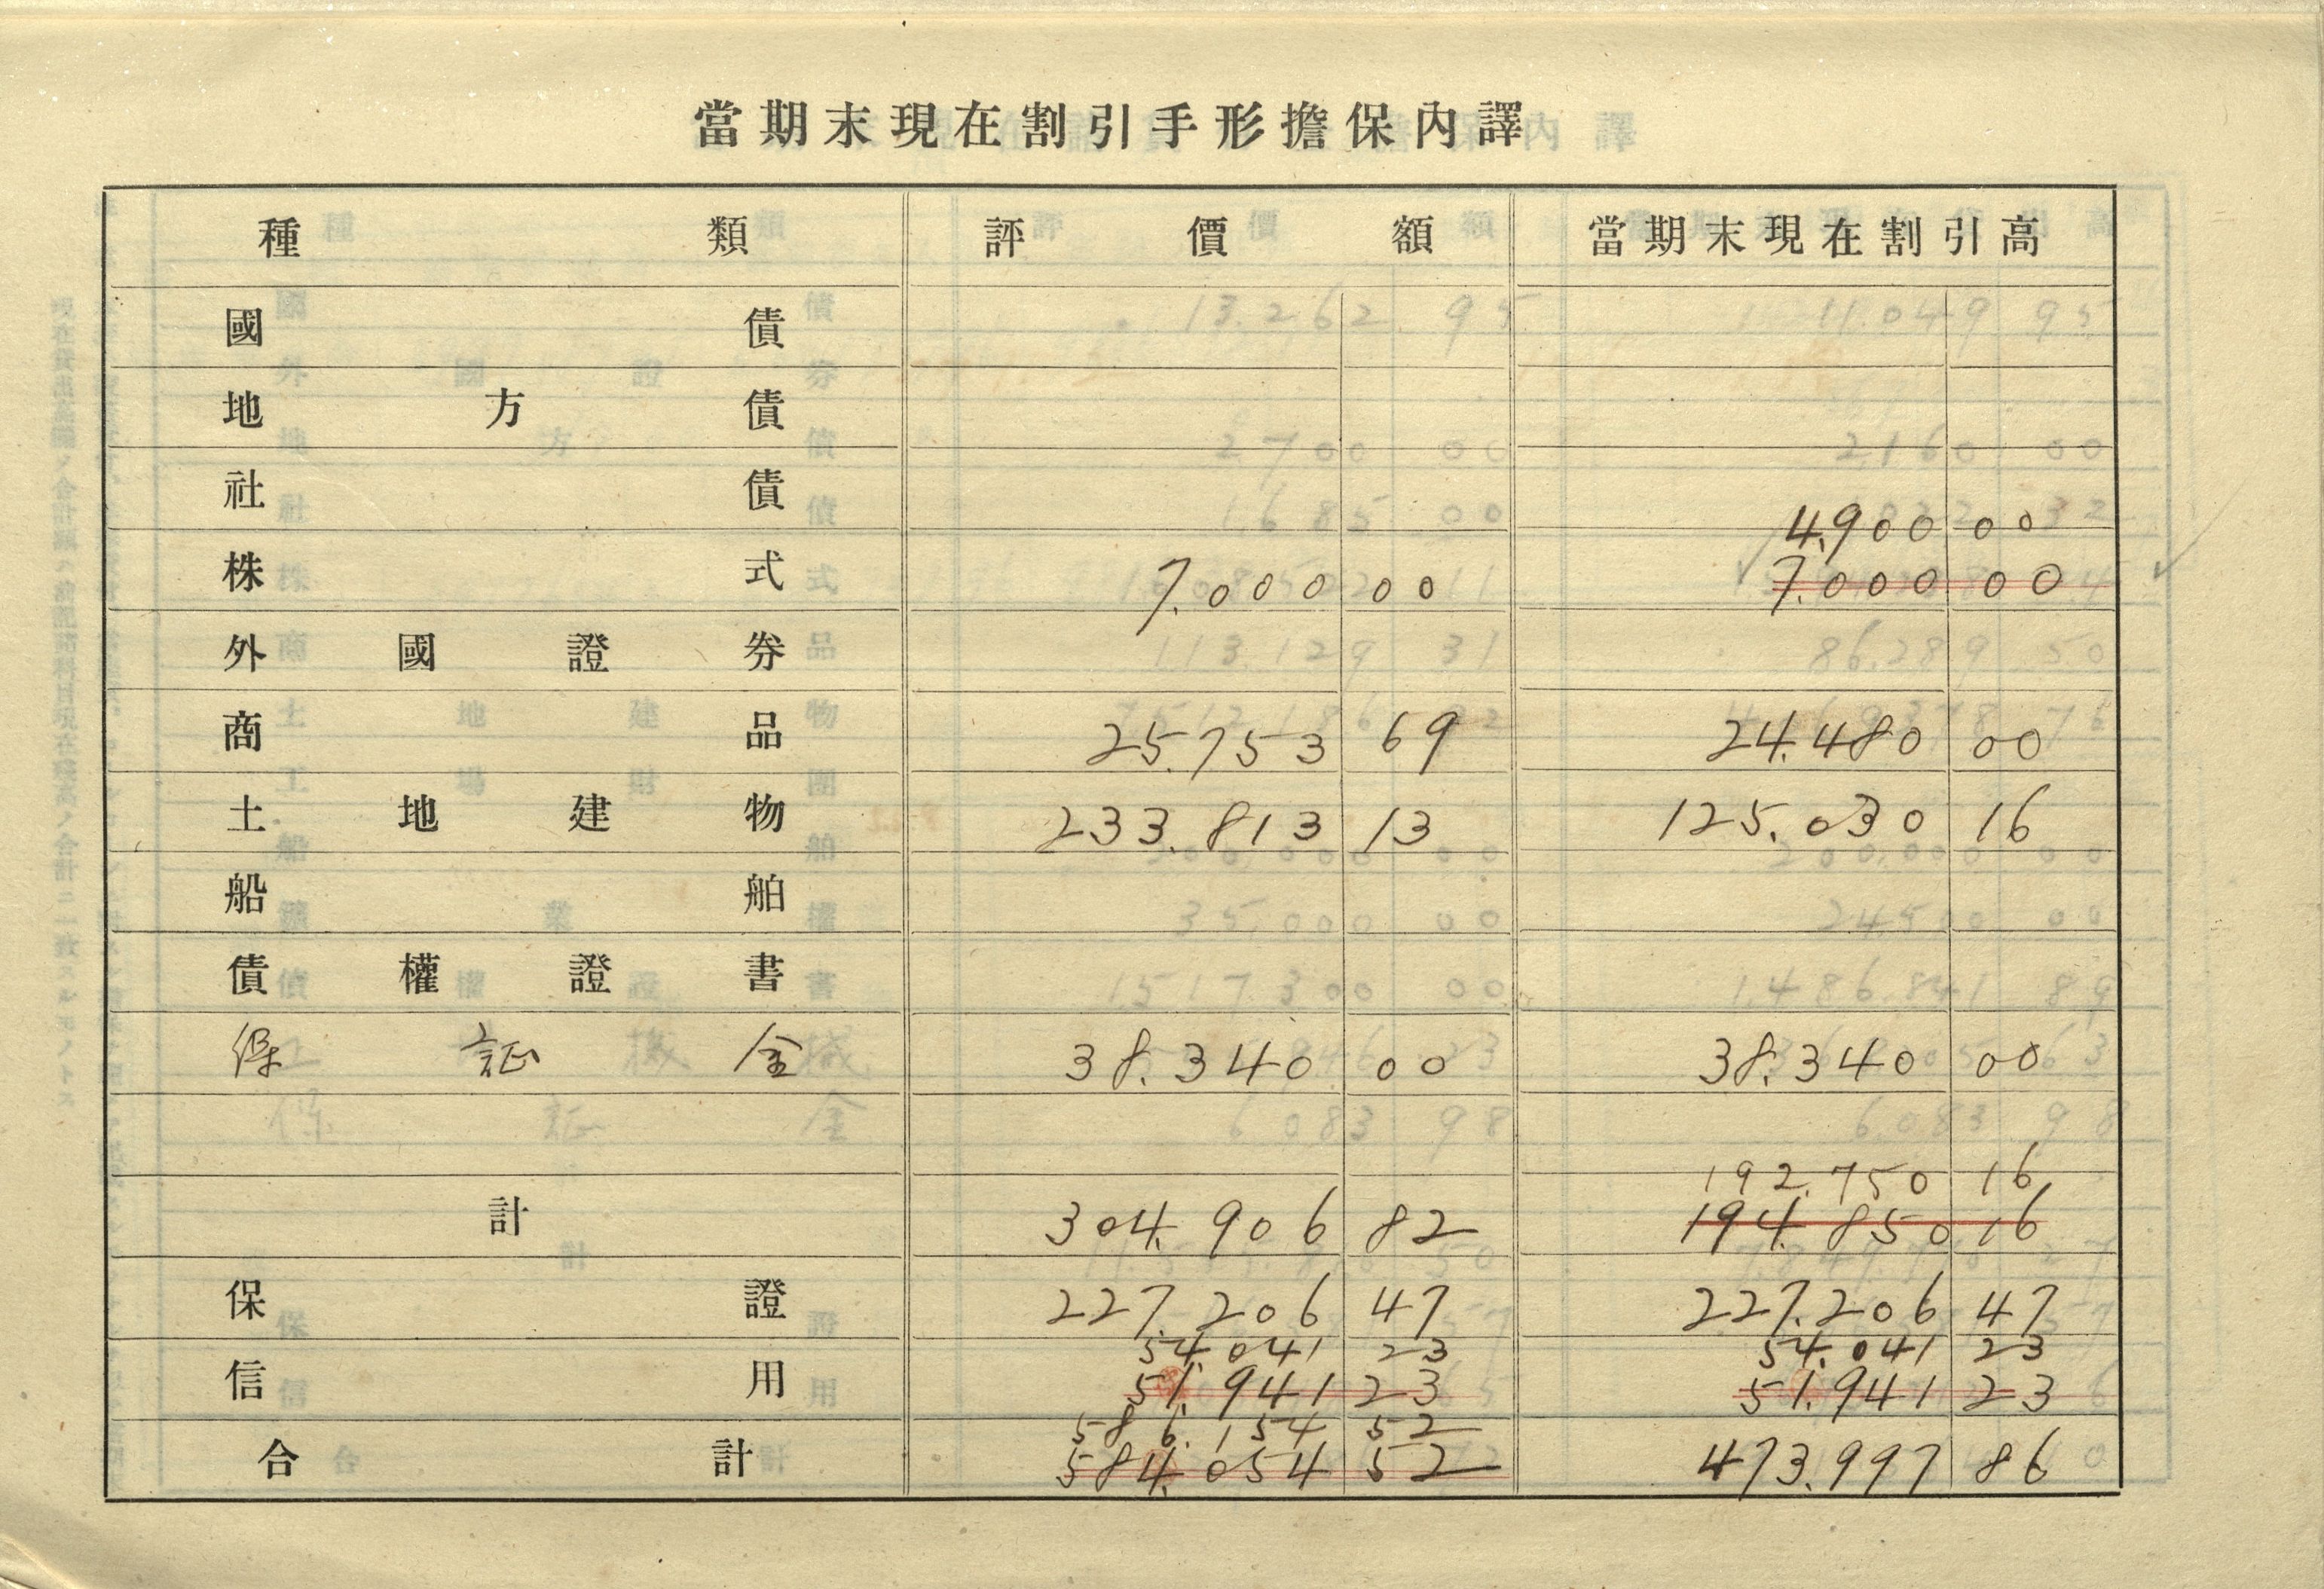 當期末現在割引手形擔保內譯
種類 評價額 當期末現在割引高
國債
地方債
社債
4,900 00
株式 7.000 00 7.000 00
外國證券
商品 25.753 69 24.480 00
土地建物 233.813 13 125.030 16
船舶
債權證書
保証金 38.340 00 38.340 00
192.750 16
計 304.906 82 194.850 16
保證 227.206 47 227.206 47
54.041 23 54.041 23
信用 51.941 23 51.941 23
586.154 52
合計 584.054 52 473.997 86